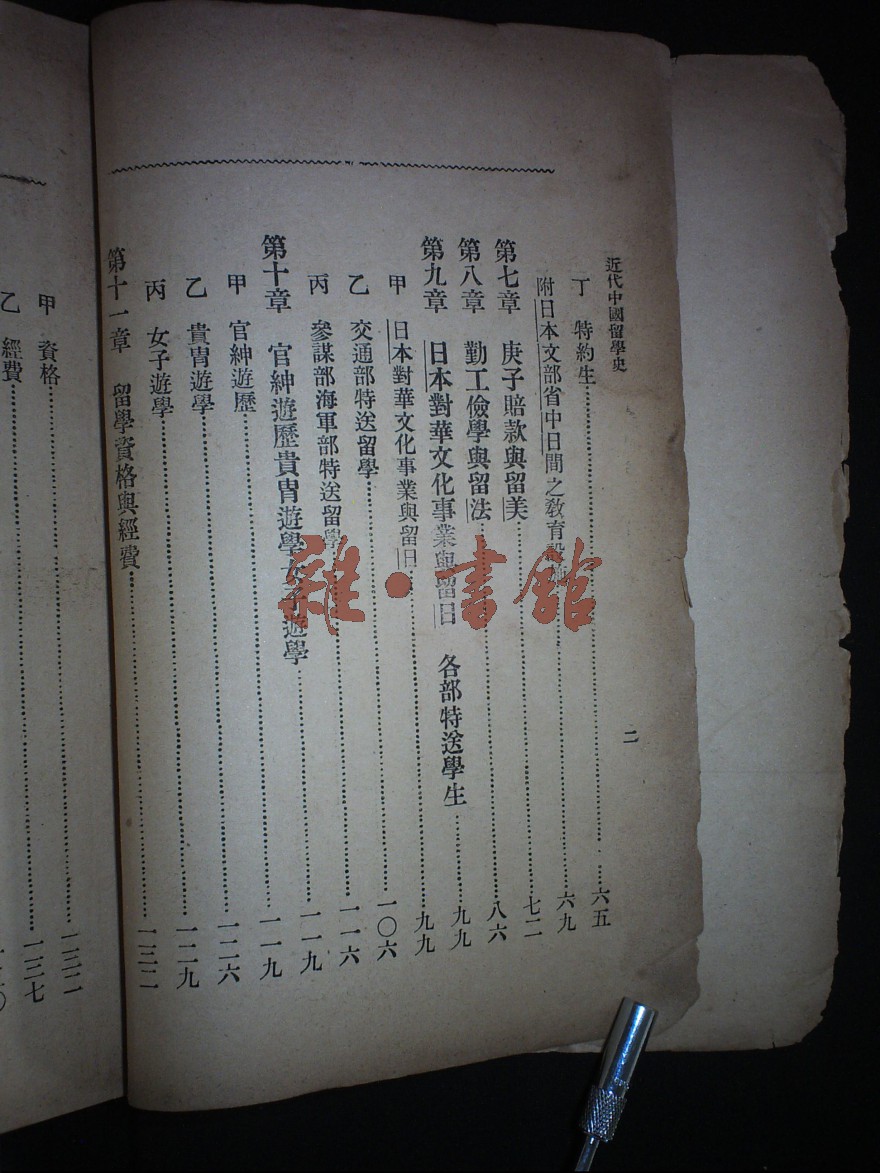 近代中國留學史 二
丁 特約生 六五
附日本文部省中日間之教育設 六九
第七章 庚子賠款與留美 七二
第八章 勤工儉學與留法 八六
第九章 日本對華文化事業與留日 各部特送學生 九九
甲 日本對華文化事業與留日 九九
乙 交通部特送留學 一〇六
丙 參謀部海軍部特送留學 一一六
第十章 官紳遊歷貴胄遊學女子遊學 一一九
甲 官紳遊歷 一一九
乙 貴胄遊學 一二六
丙 女子遊學 一二九
第十一章 留學資格與經費 一三二
甲 資格 一三二
乙 經費 一三七
雜·書館